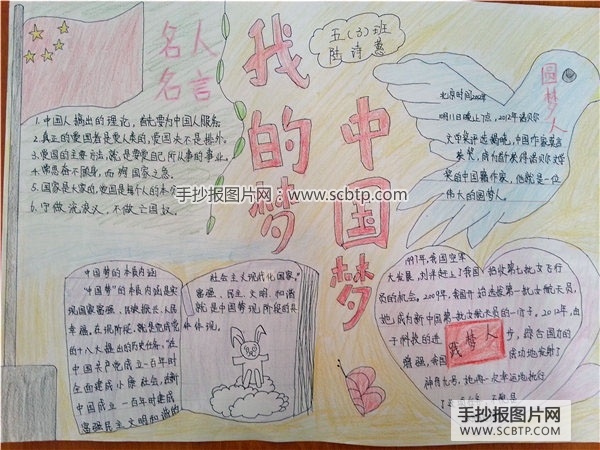 名人
名言
1.中国人提出的理论，首先要为中国人服务
2.真正的爱国者是爱人类的，爱国决不是排外。
3.爱国的主要方法，就是要爱自己所从事的事业。
4.常思奋不顾身，而殉国家之急。
5.国家是大家的，爱国是每个人的本分
6.宁做流浪汉，不做亡国奴。
我的梦
中国梦
五（3）班
陆诗
圆梦人
北京时间2012年
月11日晚上7点，2012年诺贝尔
文学奖评选揭晓，中国作家莫言
获奖，成为首个获得诺贝尔文学
奖的中国籍作家，他就是一位
伟大的圆梦人。
中国梦的本质内涵
“中国梦”的本质内涵是实
现国家富强、民族振兴、人民
幸福。在现阶段，就是党成党
的十八大提出的历史任务，在
中国共产党成立一百年时
全面建成小康社会，在新
中国成立一百年时建成
富强民主文明和谐的
社会主义现代化国家。
富强、民主、文明、和谐
就是中国梦现阶段的具
体体现。
1997年，我国空军
大发展，刘洋赶上了我国招收第七批女飞行
员的机会。2009年，我国开始选拔第一批女航天员，
她成为新中国第一批女航天员的一份子。2012年，由
于科技的进步，综合国力的
增强，我国成功地发射了
神舟九号，她再一次幸运地执行
践梦人
手抄报图片网
www.scbtp.com
手抄报图片网
SCBTP.COM